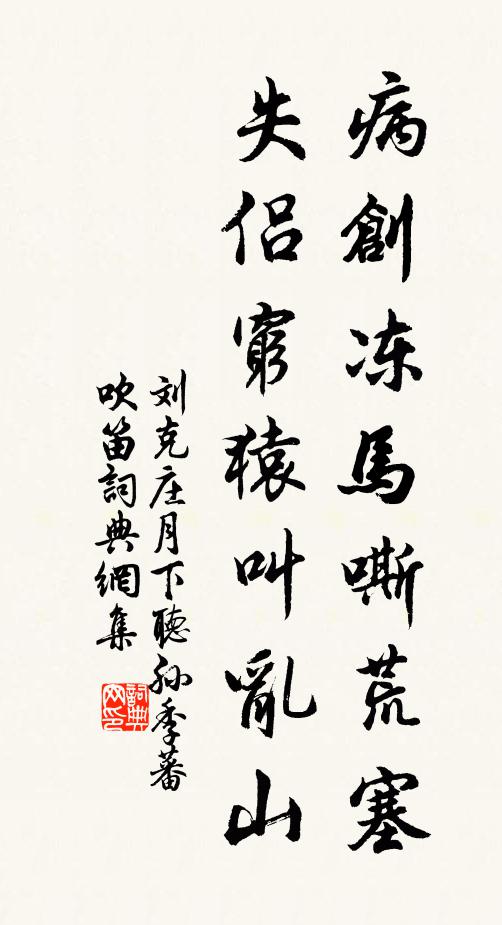 病創冻馬嘶荒塞
失侣窮猿叫亂山
刘克庄月下聽孙季蕃
吹笛詞典網集
詞典
网印